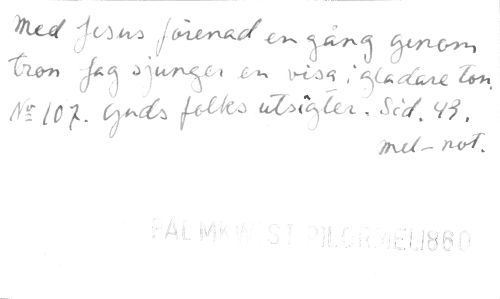 Med Jesus förenad en gång genom
tron Jag sjunger en visa i gladare ton.
No 107. Guds folks utsigter. Sid. 43.
mel-not.
PALMKWIST PILGR 1860